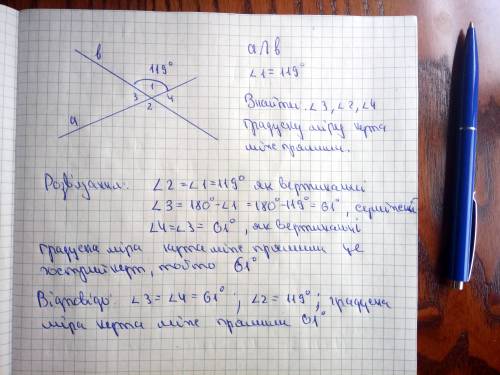 в
119°
1
3
4
2
а
а∩в
∠1 = 119°
Знайти: ∠3, ∠2, ∠4
градусну міру кута
між прямими.
Розв'язання: ∠2 = ∠1 = 119° як вертикальні
∠3 = 180° - ∠1 = 180° - 119° = 61°, суміжні
∠4 = ∠3 = 61°, як вертикальні
градусна міра кута між прямими це
гострий кут, тобто 61°
Відповідь: ∠3 = ∠4 = 61°; ∠2 = 119°; градусна
міра кута між прямими 61°